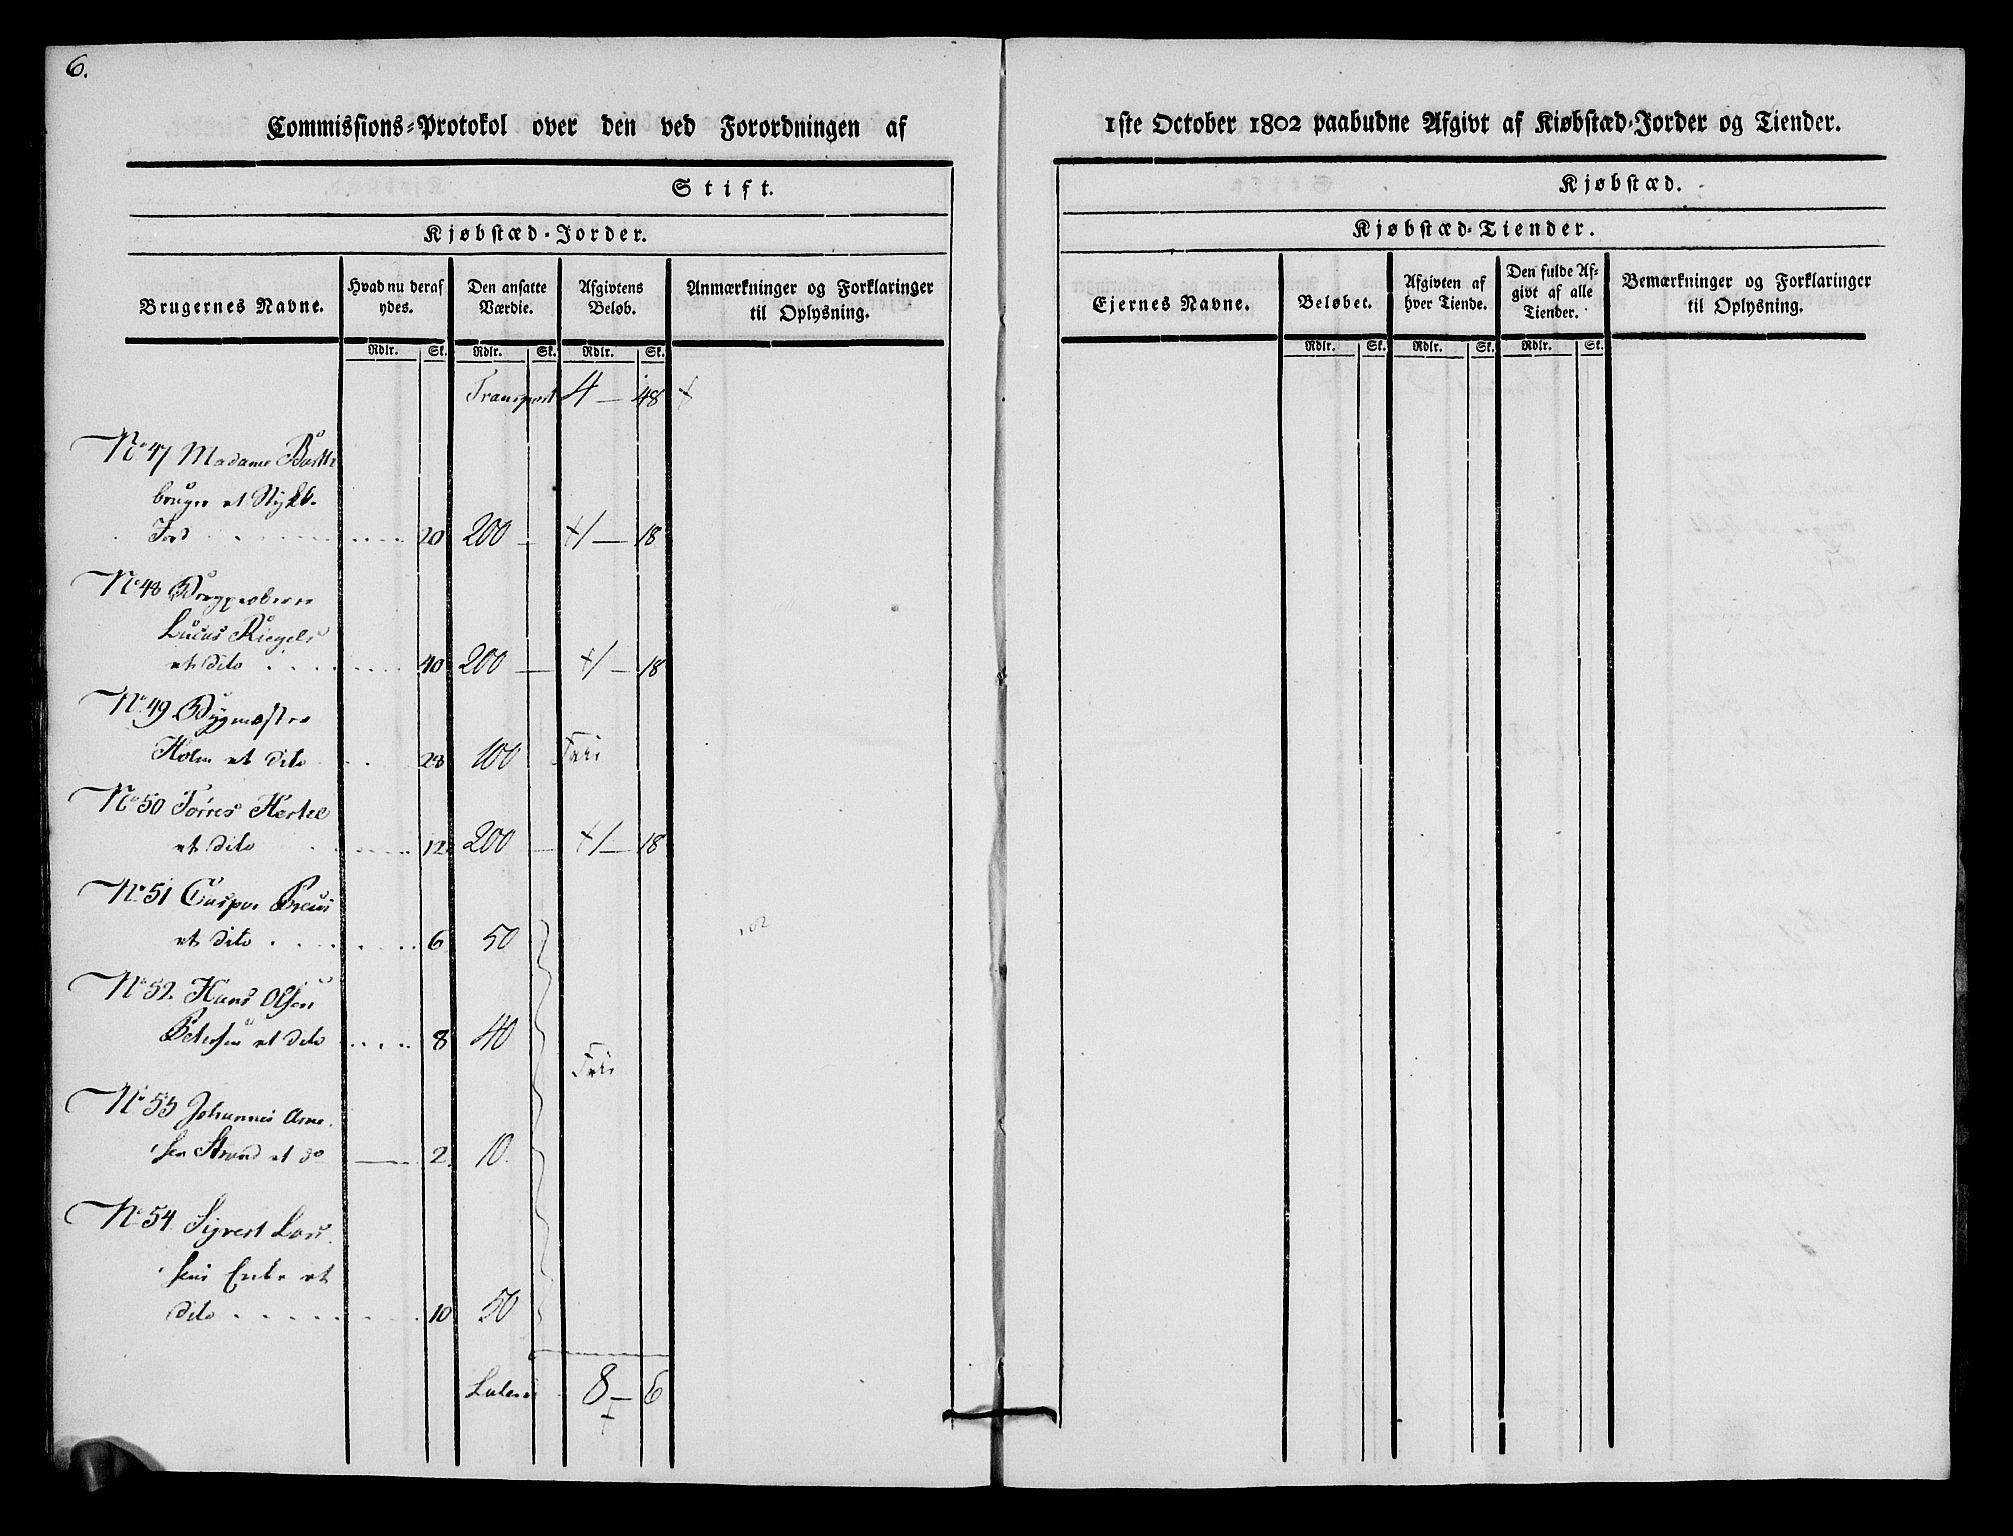 6.
Commissions=Protokol over den ved Forordningen af
Stift.
Kjøbstæd-Jorder.
Brugernes Navne. Hvad nu deraf ydes. Den ansatte Værdie. Afgivtens Beløb. Anmærkninger og Forklaringer til Oplysning.
Rdlr. Sk. Rdlr. Sk. Rdlr. Sk.
Transport 4 — 48
No 47 Madame
bruger et Stykk.
Jord 20 200 — 1 — 18
No 48
Lucas Riegels
et dito 40 200 — 1 — 18
No 49 Bygmester
Holm et dito 28 100 Frie
No 50 Tørres Hertel
et dito 12 200 — 1 — 18
No 51 Casper
et dito 6 50
No 52. Hans Olsen
Petersen et dito 8 40
Frie
No 53 Johannes Arne-
sen Strand et do 2 10
No 54 Sivert Lar-
sens Enke et
dito 10 50
Lateris 8 — 6
1ste October 1802 paabudne Afgivt af Kiøbstæd-Jorder og Tiender.
Kjøbstæd.
Kjøbstæd-Tiender.
Ejernes Navne. Beløbet. Afgivten af hver Tiende. Den fulde Afgivt af alle Tiender. Bemærkninger og Forklaringer til Oplysning.
Rdlr. Sk. Rdlr. Sk. Rdlr. Sk.